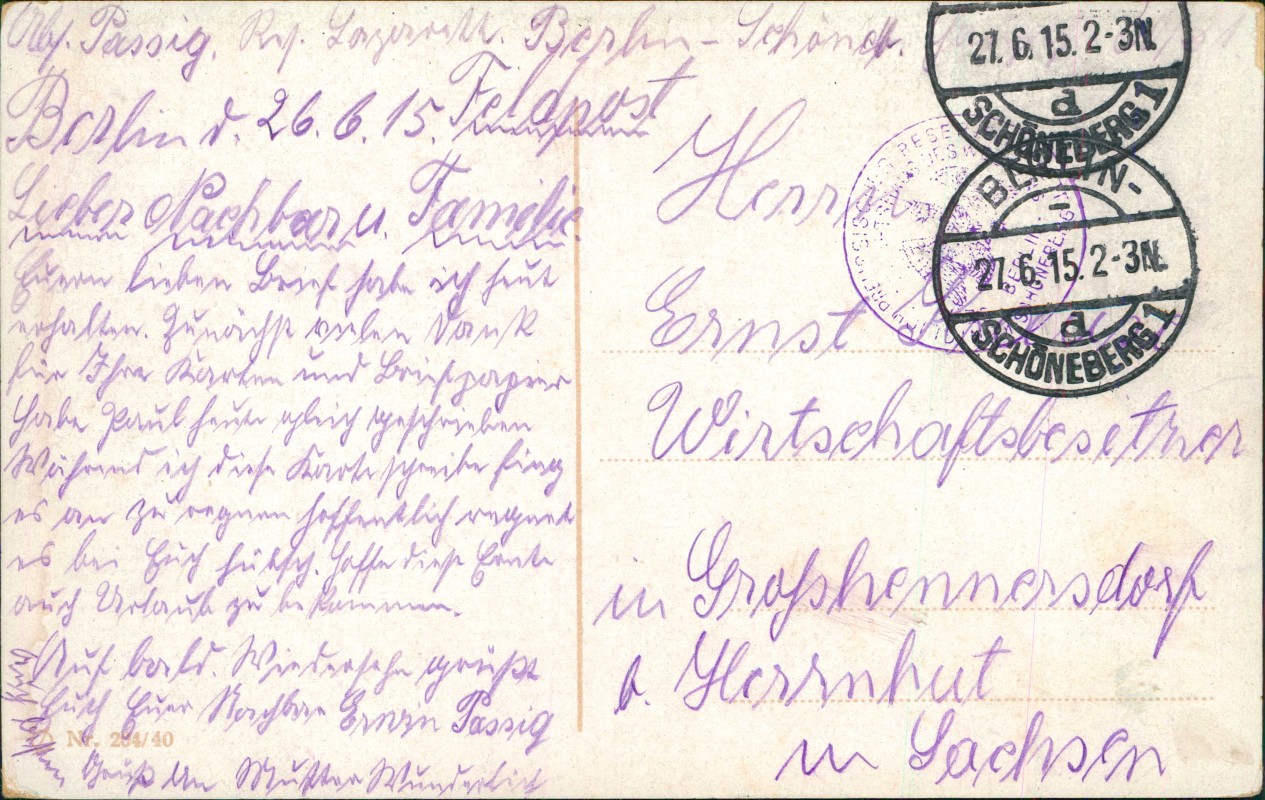 Abs. Passig. Res. Lazarett. Berlin-Schöneb.
Berlin d. 26.6.15. Feldpost
Lieber Nachbar u. Familie.
Euern lieben Brief habe ich heut
erhalten. Zunächst vielen Dank
für Ihre Karten und Briefpapier
Habe Paul heute gleich geschrieben
Während ich diese Karte schreibe fing
es an zu regnen hoffentlich regnet
es bei Euch hübsch. Hoffe diese Ernte
auch Urlaub zu bekommen.
Auf bald. Wiedersehn grüßt
Euch Euer Nachbar Erwin Passig
Gruß an Mutter Wunderlich
Nr. 294/40
Herrn
Ernst
Wirtschaftsbesitzer
in Großhennersdorf
b. Herrnhut
in Sachsen
27.6.15. 2-3N.
d
SCHÖNEBERG 1
BERLIN-
27.6.15. 2-3N.
d
SCHÖNEBERG 1
BERLIN-
SCHÖNEBERG